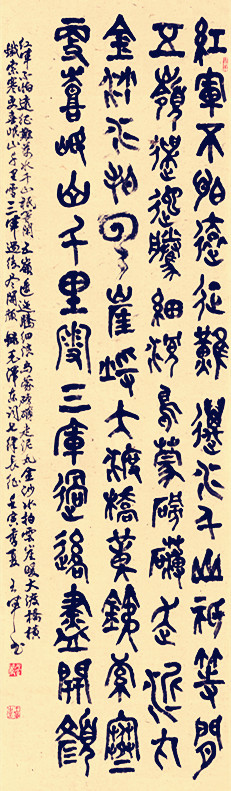 紅軍不怕遠征難萬水千山祇等閒
五嶺逶迤騰細浪烏蒙磅礴走泥丸
金沙水拍雲崖暖大渡橋橫鐵索寒
更喜岷山千里雪三軍過後盡開顏
红軍不怕遠征難萬水千山祇等閒五嶺逶迤騰細浪烏蒙磅礴走泥丸金沙水拍雲崖暖大渡橋橫
鐵索寒更喜岷山千里雪三軍過後尽開顏錄毛澤東詞七律長征壬寅季夏王書